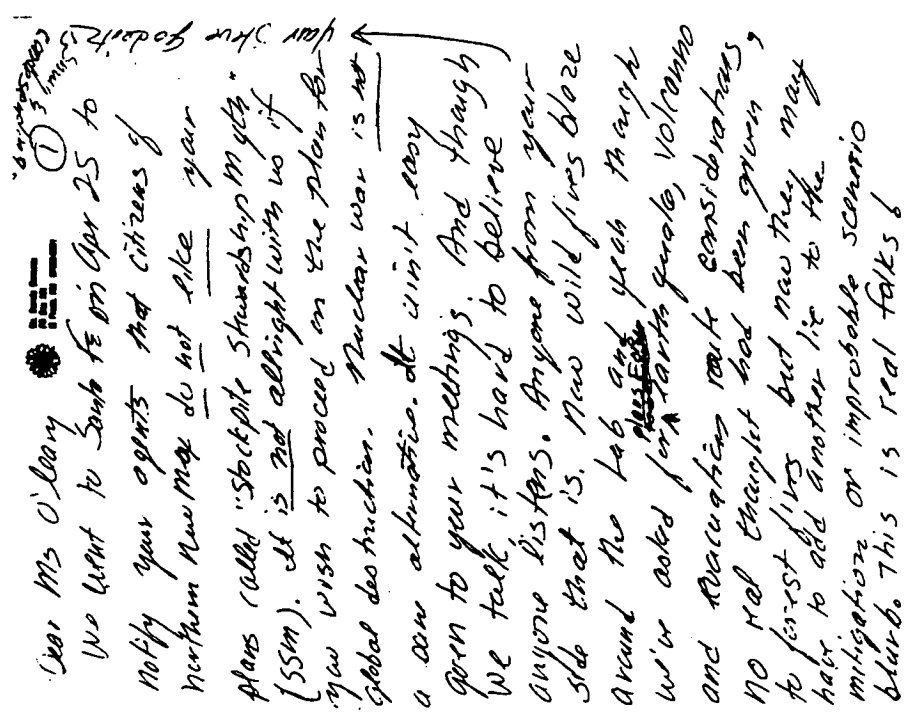 Dear Ms O'leary
We went to Santa Fe on Apr 25 to
notify your agents that citizens of
northern New Mex do not like your
plans called "Stockpile Stewardship Myth"
(SSM). It is not alright with us if
you wish to proceed on the plan for
Global destruction. Nuclear war is not
a sane alternative. It isn't easy
to your meetings And though
we talk, it's hard to believe
anyone listens. Anyone from your
side that is. Now wild fires blaze
around the Lab and yeah though
we've asked for earth quake, volcanno
and evacuation route considerations,
no real thought had been given,
to forest fires but now they may
have to add another lie to the
mitigation or improbable scenerio
blurb. This is real folks!
①
your